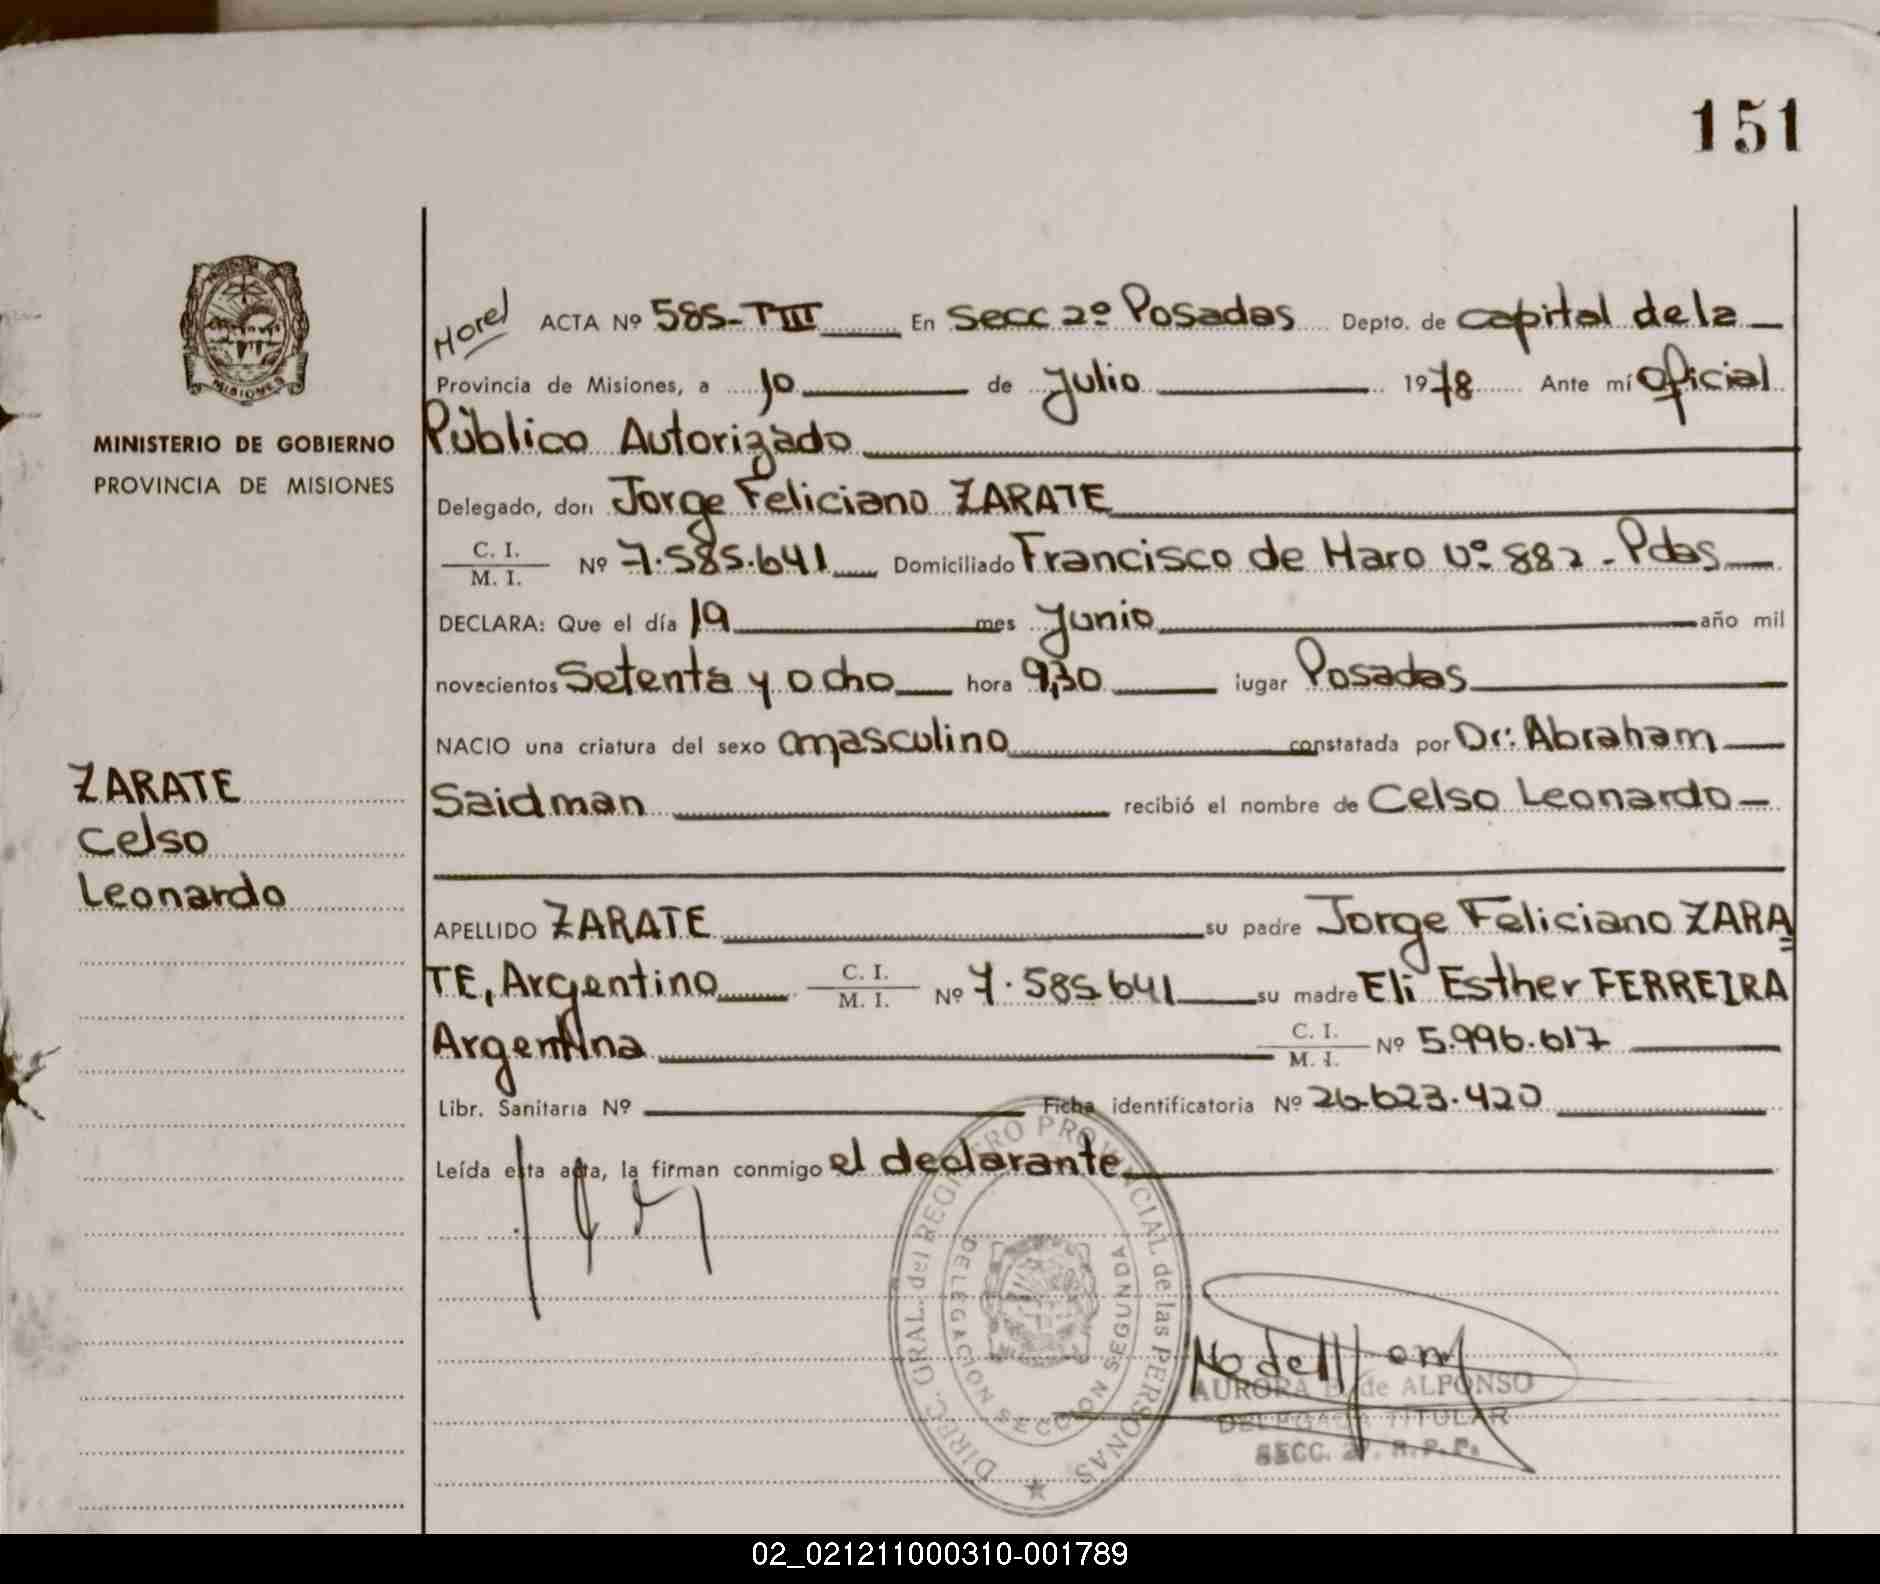 151
MINISTERIO DE GOBIERNO
PROVINCIA DE MISIONES
ZARATE
Celso
Leonardo
ACTA Nº 585-TIII En Secc 2º Posadas Depto. de capital de la
Provincia de Misiones, a 10 de Julio 1978 Ante mí Oficial
Público Autorizado
Delegado, don Jorge Feliciano ZARATE
C. I.
M. I. Nº 7.585.641 Domiciliado Francisco de Haro Nº 882 - Pdas
DECLARA: Que el día 19 mes Junio año mil
novecientos Setenta y ocho hora 9,30 lugar Posadas
NACIO una criatura del sexo masculino constatada por Dr: Abraham
Saidman recibió el nombre de Celso Leonardo
APELLIDO ZARATE su padre Jorge Feliciano ZARA
TE, Argentino C. I. M. I. Nº 7.585.641 su madre Eli Esther FERREIRA
Argentina C. I. M. I. Nº 5.996.617
Libr. Sanitaria Nº Ficha identificatoria Nº 26.623.420
Leída esta acta, la firman conmigo el declarante
DIREC. GRAL. del REGISTRO PROVINCIAL de las PERSONAS
DELEGACION SECCION SEGUNDA
AURORA B. de ALFONSO
DELEGADA TITULAR
SECC. 2ª. R. P. P.
02_021211000310-001789